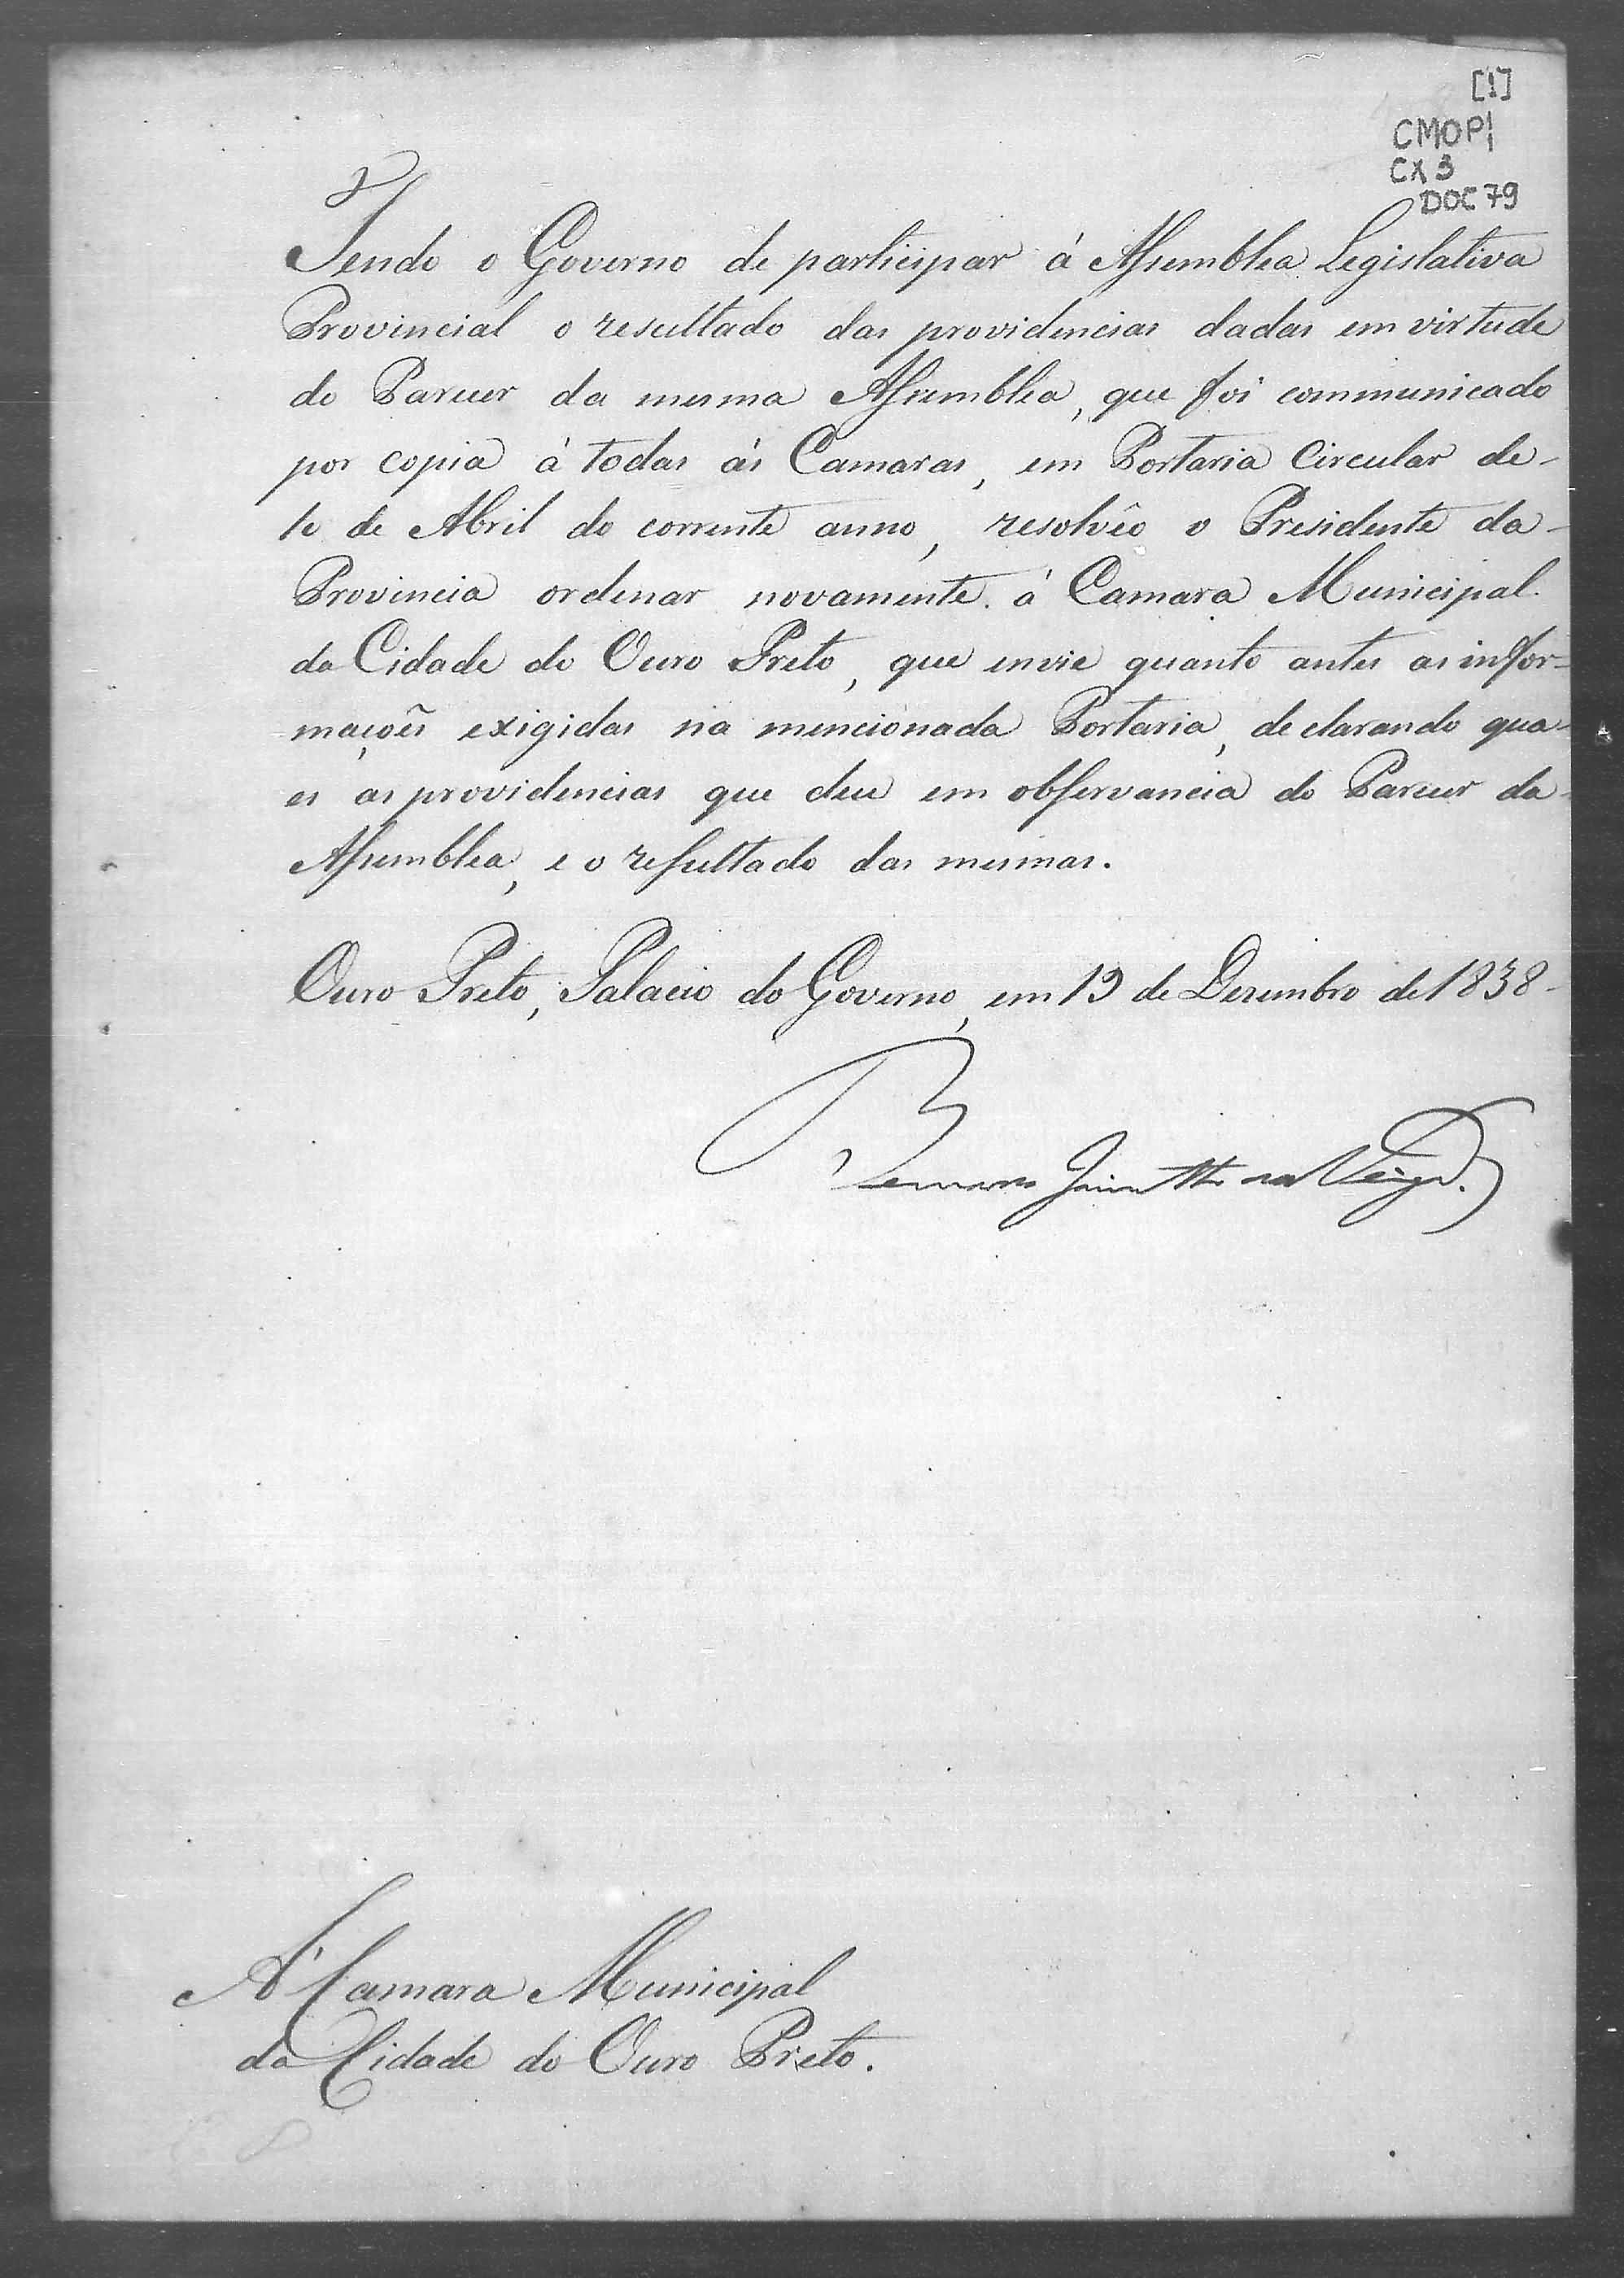 [1]
CMOP|
CX 3
DOC 79
Tendo o Governo de participar á Assemblea Legislativa
Provincial o resultado das providencias dadas em virtude
do Parecer da mesma Assemblea, que foi communicado
por copia á todas ás Camaras, em Portaria Circular de-
10 de Abril do corrente anno, resolvêo o Presidente da-
Provincia ordenar novamente á Camara Municipal
da Cidade do Ouro Preto, que envie quanto antes as infor-
maçoẽs exigidas na mencionada Portaria, declarando qua-
es as providencias que deu em observancia do Parecer da-
Assemblea, e o resultado das mesmas.
Ouro Preto, Palacio do Governo, em 19 de Dezembro de 1838-
Bernardo Jacintho da Veiga.
A' Camara Municipal
da Cidade do Ouro Preto.